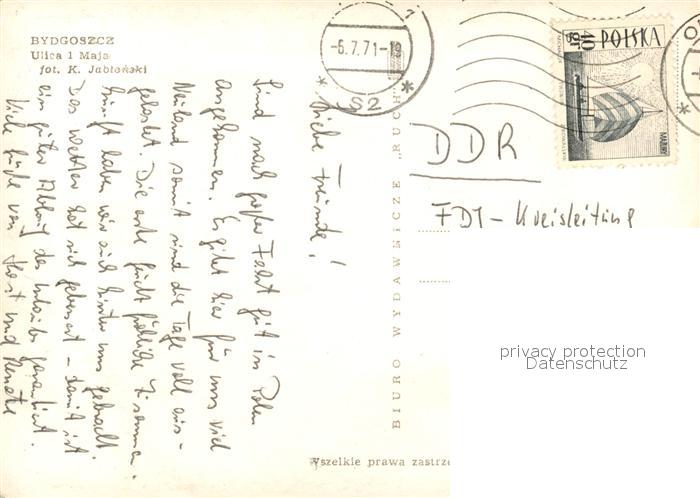 BYDGOSZCZ
Ulica 1 Maja
fot. K. Jabłoński
-6.7.71-19
S2
40 gr
POLSKA
MAZURY
DDR
FDJ - Kreisleitung
BIURO WYDAWNICZE „RUCH”
Liebe Freunde!
Sind nach großer Fahrt gut in Polen
angekommen. Es gibt hier für uns viel
Neuland somit sind die Tage voll aus-
gelastet. Die erste fröhliche Zusammen-
kunft haben wir auch hinter uns gebracht.
Das Wetter hat sich gebessert - damit ist
ein guter des Urlaubs garantiert.
Viele Grüße von Horst und Renate
privacy protection
Datenschutz
Wszelkie prawa zastrze